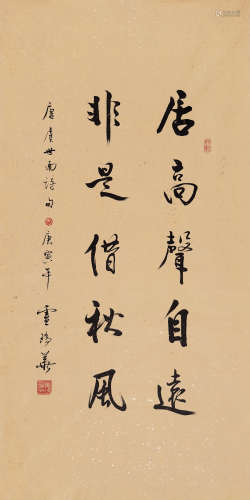 居高聲自遠
非是借秋風
唐虞世南詩句 庚寅年